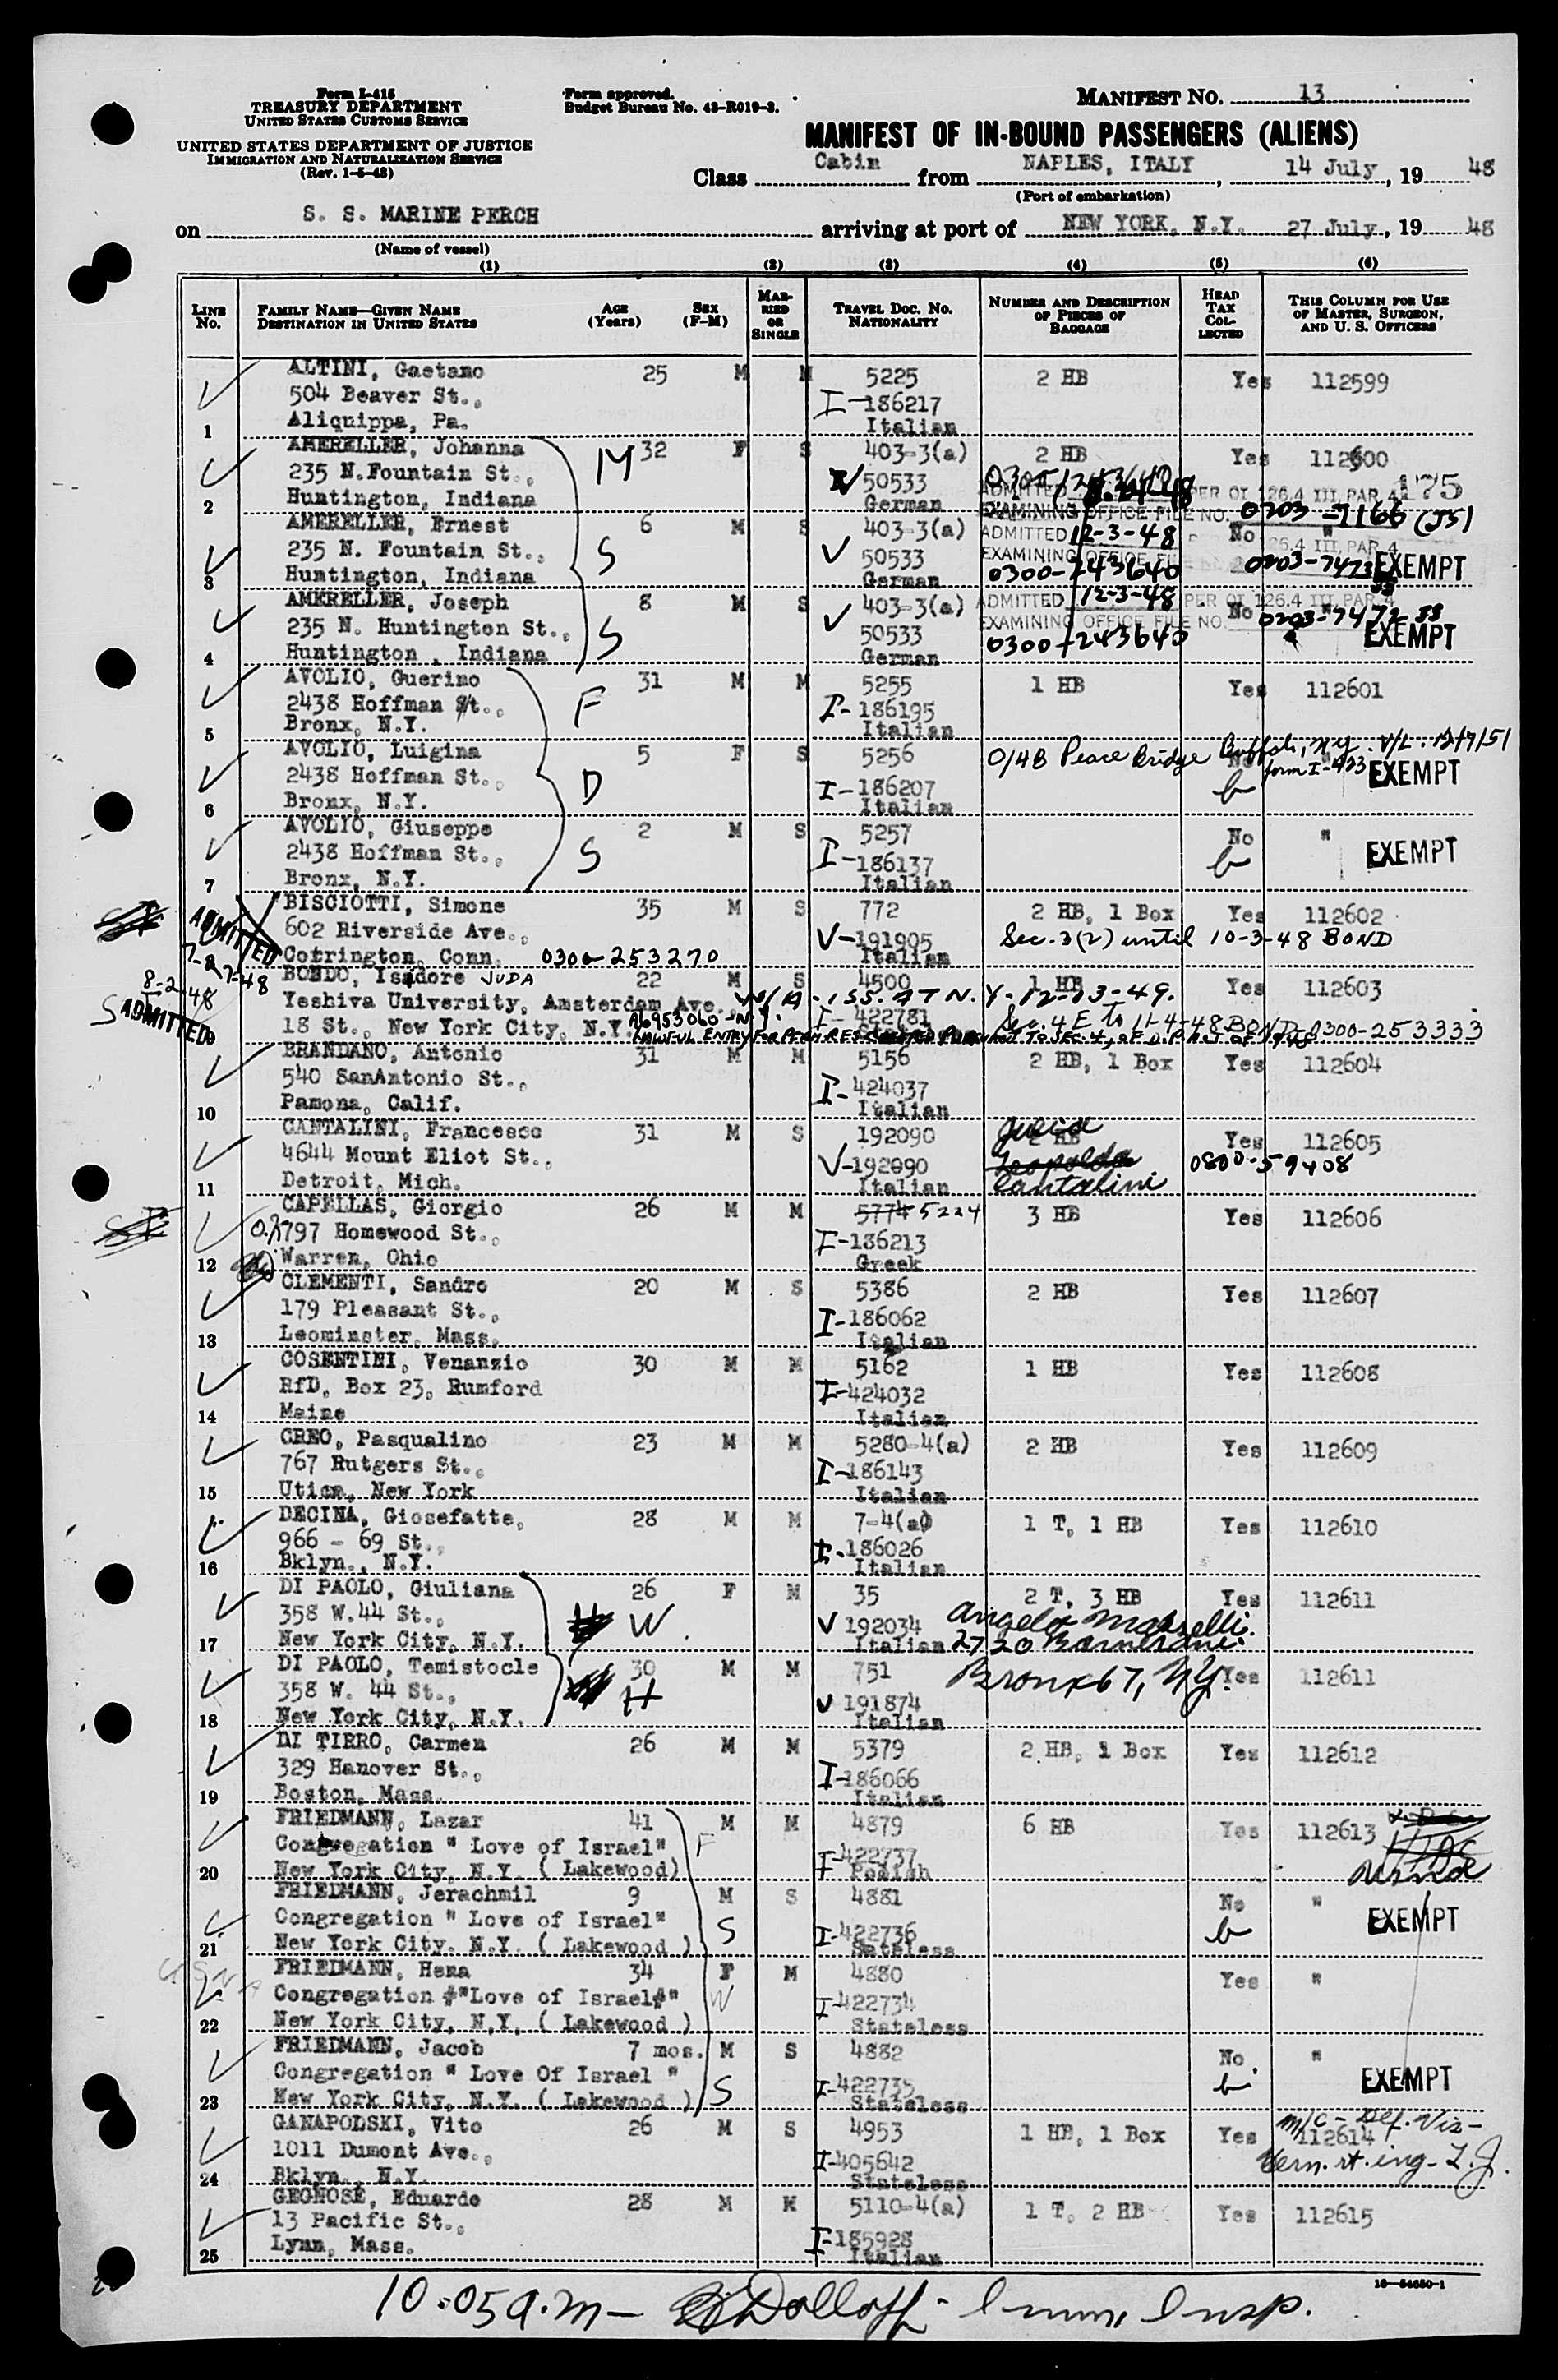 Form I-415
TREASURY DEPARTMENT
UNITED STATES CUSTOMS SERVICE
UNITED STATES DEPARTMENT OF JUSTICE
IMMIGRATION AND NATURALIZATION SERVICE
(Rev. 1-5-48)
Form approved.
Budget Bureau No. 43-R019-3.
MANIFEST NO. 13
MANIFEST OF IN-BOUND PASSENGERS (ALIENS)
Class Cabin from NAPLES, ITALY, 14 July, 19 48
(Port of embarkation)
on S. S. MARINE PERCH arriving at port of NEW YORK, N.Y. 27 July, 19 48
(Name of vessel)
(1) (2) (3) (4) (5) (6)
LINE No. FAMILY NAME—GIVEN NAME DESTINATION IN UNITED STATES AGE (Years) SEX (F-M) MARRIED OR SINGLE TRAVEL DOC. NO. NATIONALITY NUMBER AND DESCRIPTION OF PIECES OF BAGGAGE HEAD TAX COLLECTED THIS COLUMN FOR USE OF MASTER, SURGEON, AND U. S. OFFICERS
ALTINI, Gaetano 25 M M 5225 2 HB Yes 112599
504 Beaver St., I-186217
1 Aliquippa, Pa. Italian
AMERELLER, Johanna M 32 F S 403-3(a) 2 HB Yes 112600
235 N.Fountain St., V 50533 175
2 Huntington, Indiana German ADMITTED PER OI 126.4 III, PAR 4
EXAMINING OFFICE FILE NO. 0203-7166 (JS)
AMERELLER, Ernest 6 M S 403-3(a) ADMITTED 12-3-48 No "
235 N. Fountain St., S V 50533 EXAMINING OFFICE FILE
3 Huntington, Indiana German 0300-243640 0203-7473 EXEMPT
AMERELLER, Joseph 8 M S 403-3(a) ADMITTED 12-3-48 PER OI 126.4 III, PAR 4 No "
235 N. Huntington St., S V 50533 EXAMINING OFFICE FILE NO. 0203-7472
4 Huntington, Indiana German 0300-243640 EXEMPT
AVOLIO, Guerino 31 M M 5255 1 HB Yes 112601
2438 Hoffman St., F I-186195
5 Bronx, N.Y. Italian
AVOLIO, Luigina 5 F S 5256 0/4B Peace Bridge Buffalo, NY. V/L. No "
2438 Hoffman St., D I-186207 form I-433 EXEMPT
6 Bronx, N.Y. Italian
AVOLIO, Giuseppe 2 M S 5257 No "
2438 Hoffman St., S I-186137 EXEMPT
7 Bronx, N.Y. Italian
BISCIOTTI, Simone 35 M S 772 2 HB, 1 Box Yes 112602
ADMITTED 602 Riverside Ave., V-191905 Sec. 3(2) until 10-3-48 BOND
Cotrington, Conn. 0300-253270 Italian
BONDO, Isadore JUDA 22 M S 4500 1 HB Yes 112603
8-2-48 Yeshiva University, Amsterdam Ave. I-422781
ADMITTED 9 18 St., New York City, N.Y. A6953060 N.Y. Sec. 4E to 11-4-48 BOND 0300-253333
BRANDANO, Antonio 31 M M 5156 2 HB, 1 Box Yes 112604
540 SanAntonio St., I-424037
10 Pamona, Calif. Italian
CANTALINI, Francesco 31 M S 192090 2 HB Yes 112605
4644 Mount Eliot St., V-192090 0800-59408
11 Detroit, Mich. Italian Cantalini
CAPELLAS, Giorgio 26 M M 5774 5224 3 HB Yes 112606
797 Homewood St., I-186213
12 Warren, Ohio Greek
CLEMENTI, Sandro 20 M S 5386 2 HB Yes 112607
179 Pleasant St., I-186062
13 Leominster, Mass. Italian
COSENTINI, Venanzio 30 M M 5162 1 HB Yes 112608
RfD, Box 23, Rumford I-424032
14 Maine Italian
CREO, Pasqualino 23 M M 5280-4(a) 2 HB Yes 112609
767 Rutgers St., I-186143
15 Utica, New York Italian
DECINA, Giosefatte, 28 M M 7-4(a) 1 T, 1 HB Yes 112610
966 - 69 St., I-186026
16 Bklyn., N.Y. Italian
DI PAOLO, Giuliana 26 F M 35 2 T, 3 HB Yes 112611
358 W.44 St., W. V 192034
17 New York City, N.Y. Italian 2720
DI PAOLO, Temistocle 30 M M 751 Bronx 67, NY. Yes 112611
358 W. 44 St., H V 191874
18 New York City, N.Y. Italian
DI TIRRO, Carmen 26 M M 5379 2 HB, 1 Box Yes 112612
329 Hanover St., I-186066
19 Boston, Mass. Italian
FRIEDMANN, Lazar 41 M M 4879 6 HB Yes 112613
Congregation " Love of Israel" F I-422737
20 New York City, N.Y. ( Lakewood) Polish
FRIEDMANN, Jerachmil 9 M S 4881 No "
Congregation " Love of Israel" S I-422736 EXEMPT
21 New York City. N.Y. ( Lakewood ) Stateless
FRIEDMANN, Hena 34 F M 4880 Yes "
Congregation "Love of Israel" W I-422734
22 New York City, N.Y. ( Lakewood ) Stateless
FRIEDMANN, Jacob 7 mos. M S 4882 No "
Congregation " Love Of Israel " S I-422735 EXEMPT
23 New York City, N.Y. ( Lakewood ) Stateless
GANAPOLSKI, Vito 26 M S 4953 1 HB, 1 Box Yes 112614
1011 Dumont Ave., I-405642
24 Bklyn., N.Y. Stateless
GEGNOSE, Eduardo 28 M M 5110-4(a) 1 T, 2 HB Yes 112615
13 Pacific St., I-185928
25 Lynn, Mass. Italian
16-54650-1
10:05 a.m - Dolloff - Imm. Insp.